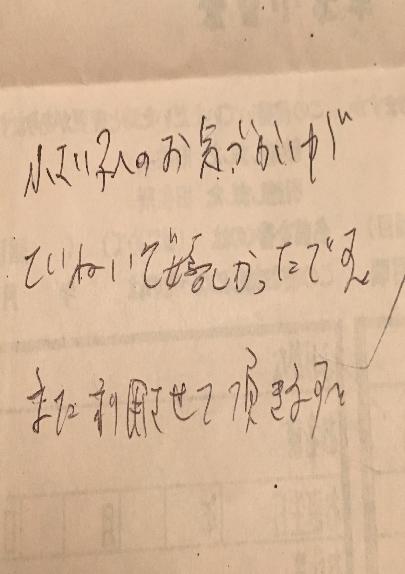 小さい子へのお気づかいが
ていねいで嬉しかったです
また利用させて頂きます